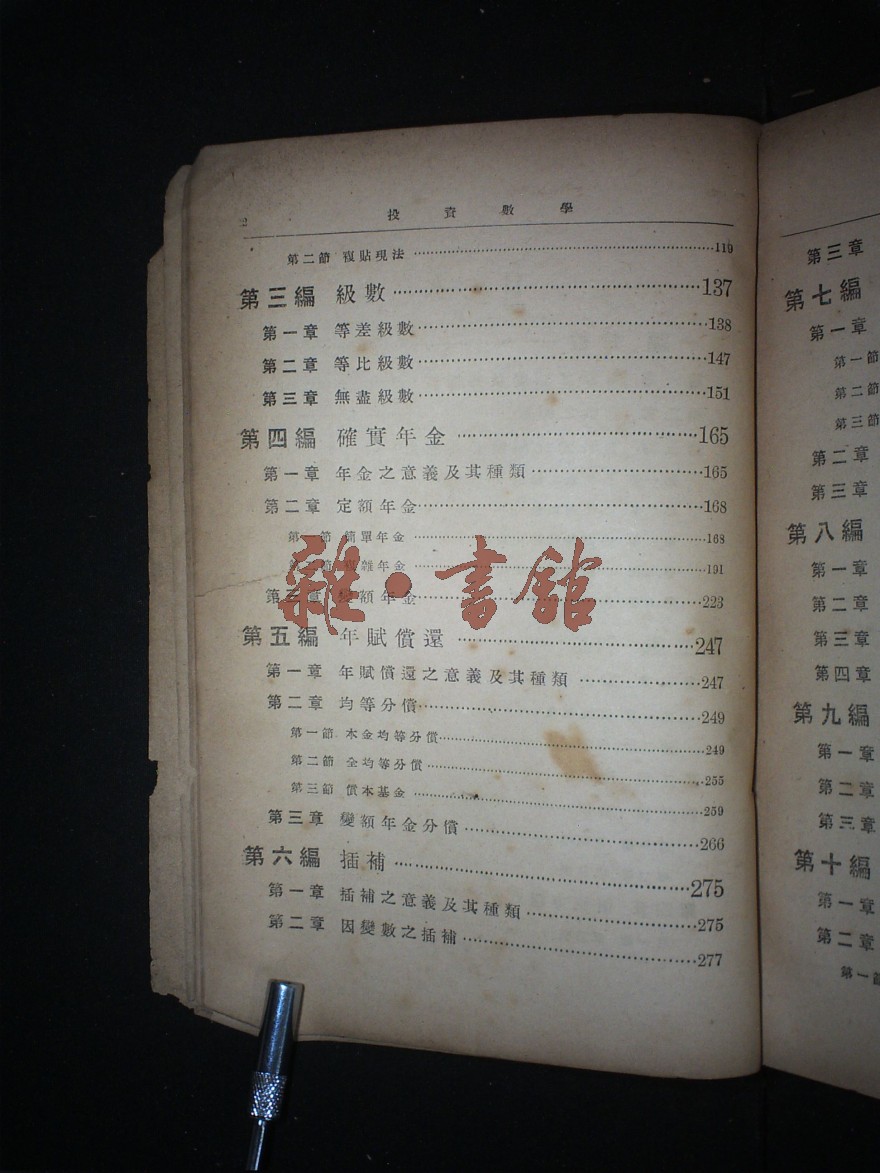 2 投資數學
第二節 複貼現法 ……119
第三編 級數……137
第一章 等差級數……138
第二章 等比級數……147
第三章 無盡級數……151
第四編 確實年金……165
第一章 年金之意義及其種類……165
第二章 定額年金……168
第 節 簡單年金……168
節 雜年金……191
第三章 變額年金……223
雜·書館
第五編 年賦償還……247
第一章 年賦償還之意義及其種類……247
第二章 均等分償……249
第一節 本金均等分償……249
第二節 全均等分償……255
第三節 償本基金……259
第三章 變額年金分償……266
第六編 插補……275
第一章 插補之意義及其種類……275
第二章 因變數之插補……277
第三章
第七編
第一章
第一節
第二節
第三節
第二章
第三章
第八編
第一章
第二章
第三章
第四章
第九編
第一章
第二章
第三章
第十編
第一章
第二章
第一節